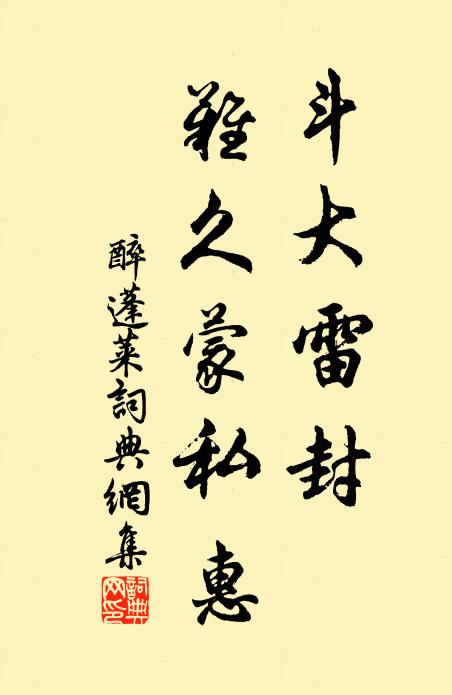 斗大雷封
難久蒙私惠
醉蓬萊詞典網集
詞典網印